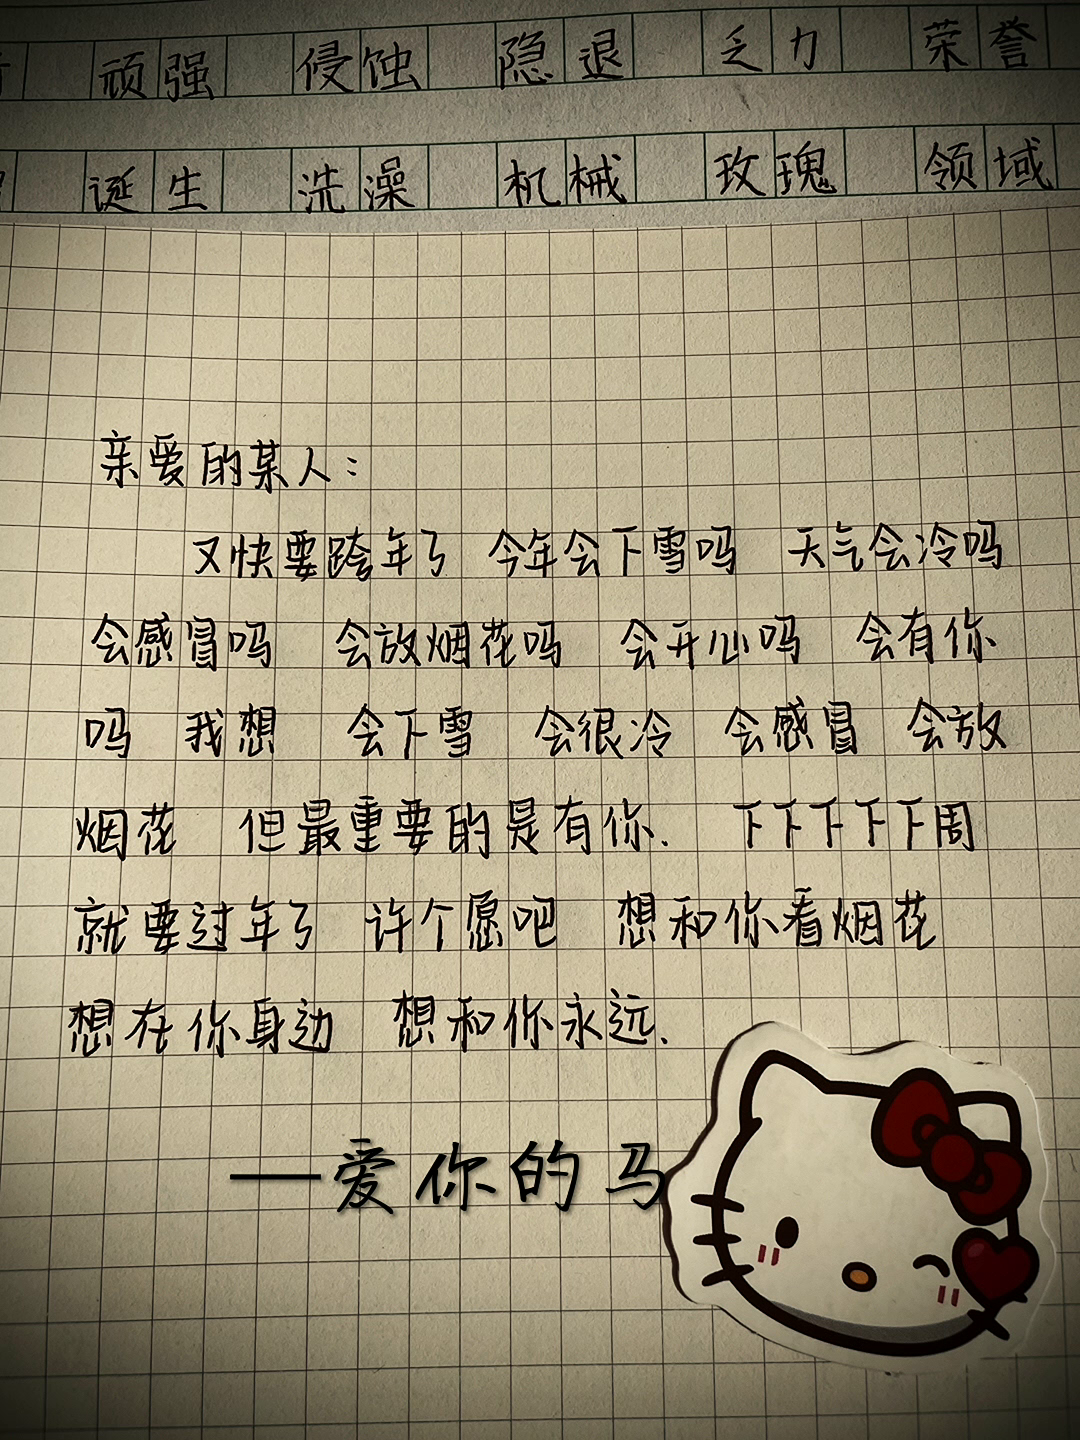 顽强 侵蚀 隐退 乏力 荣誉
诞生 洗澡 机械 玫瑰 领域
亲爱的某人：
又快要跨年了 今年会下雪吗 天气会冷吗
会感冒吗 会放烟花吗 会开心吗 会有你
吗 我想 会下雪 会很冷 会感冒 会放
烟花 但最重要的是有你. 下下下下下周
就要过年了 许个愿吧 想和你看烟花
想在你身边 想和你永远.
—爱你的马